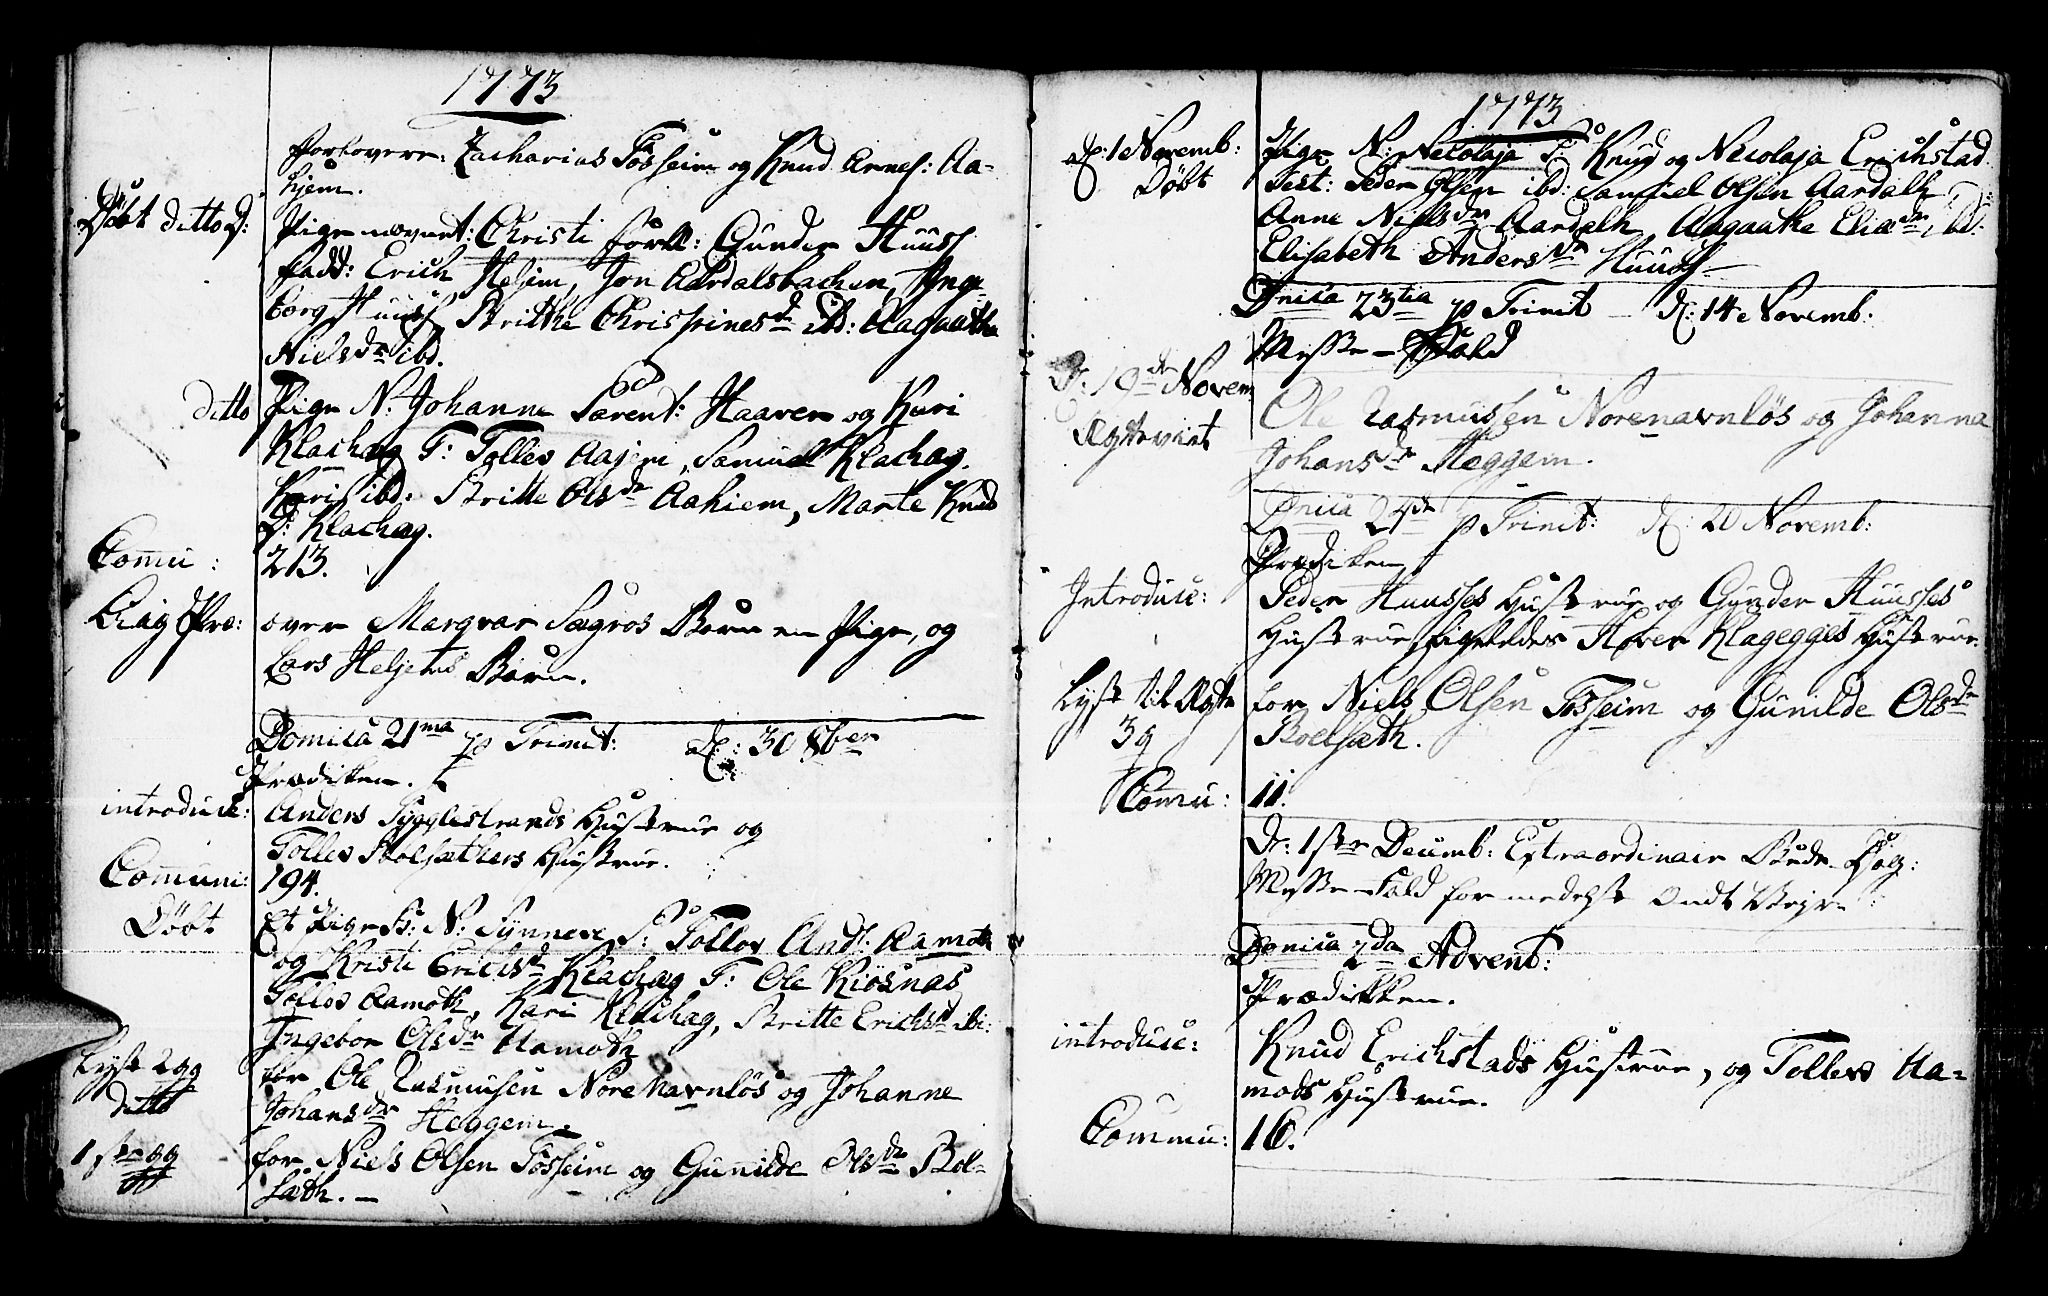 1773
Forlovere: Zacharias Fosheim og Knud Arnes: Aa-
hjem.
Døbt ditto D: Pige nevnt: Christi forll: Gunder Huus
fadd: Erich Heljem, Jon Aardalsbachen, Inge
borg Huus Britthe Chrispinesdr ibd: Aagaathe
Nielsdr ibd.
ditto Pige N: Johanne Parent: Haaver og Kari
Klachag T: Tolles Aajem, Samuel Klachag.
Kari ibd: Britte Olsdr Aahiem, Marte Knud
D: Klachag.
Comu: 213.
Liig Præ: over Margvar Sægros Barn en Pige, og
Lars Heljems Barn.
Domica 21ma p Trinit: d: 30 8ber
Prædiken.
introduce: Anders Sygglestrands Hustrue og
Tolles Bolsæthers Hustrue.
Comuni: 194.
Døbt Et Pige B: N: Synneve P: Tolles And: Aamoth
og Kristi Erichsdr Klachag T: Ole Kiøsnas
Tolles Aamoth, Kari Klachag, Britte Erichsdr ibi:
Ingebor Olsdr Aamoth
Lyst 2 gg for Ole Rasmusen Norenavnløs og Johanne
ditto Johansdr Heggem.
1ste gg for Niels Olsen Fosheim og Gunilde Olsdr Bol-
sæth. —
1773
d: 1 Novemb: Pige N: Nicolaja P: Knud og Nicolaja Erichstad
Døbt Test: Peder Olsen ibd: Samuel Olsen Aardalh
Anne Nielsdr Aardalh, Aagaathe Eliædr, ibd:
Elisabeth Andersdr Huus —
Dnica 23tia p Trinit — d: 14 Novemb:
Messe-Fald
D: 19de Novem Ole Rasmussen Norenavnløs og Johanna
Ægteviet Johansdr Heggem.
Dnica 24de p Trinit: d: 20 Novemb:
Prædiken
Introduce: Peder Huusses Hustrue og Gunder Huusses
Hustrue, ligeledes Hover Klagegges Hustrue.
Lyst til Ægte for Niels Olsen Fosheim og Gunilde Olsdr
3g Boelsæth.
Comu: 11.
D: 1ste Decemb: Extraordinair Bede Dag:
Messe-Fald formedelst Ondt Vejr
Domica 2da Advent:
Prædikken.
introduce: Knud Erichstads Hustrue, og Tolles Aa-
mods Hustrue.
Commu: 16.